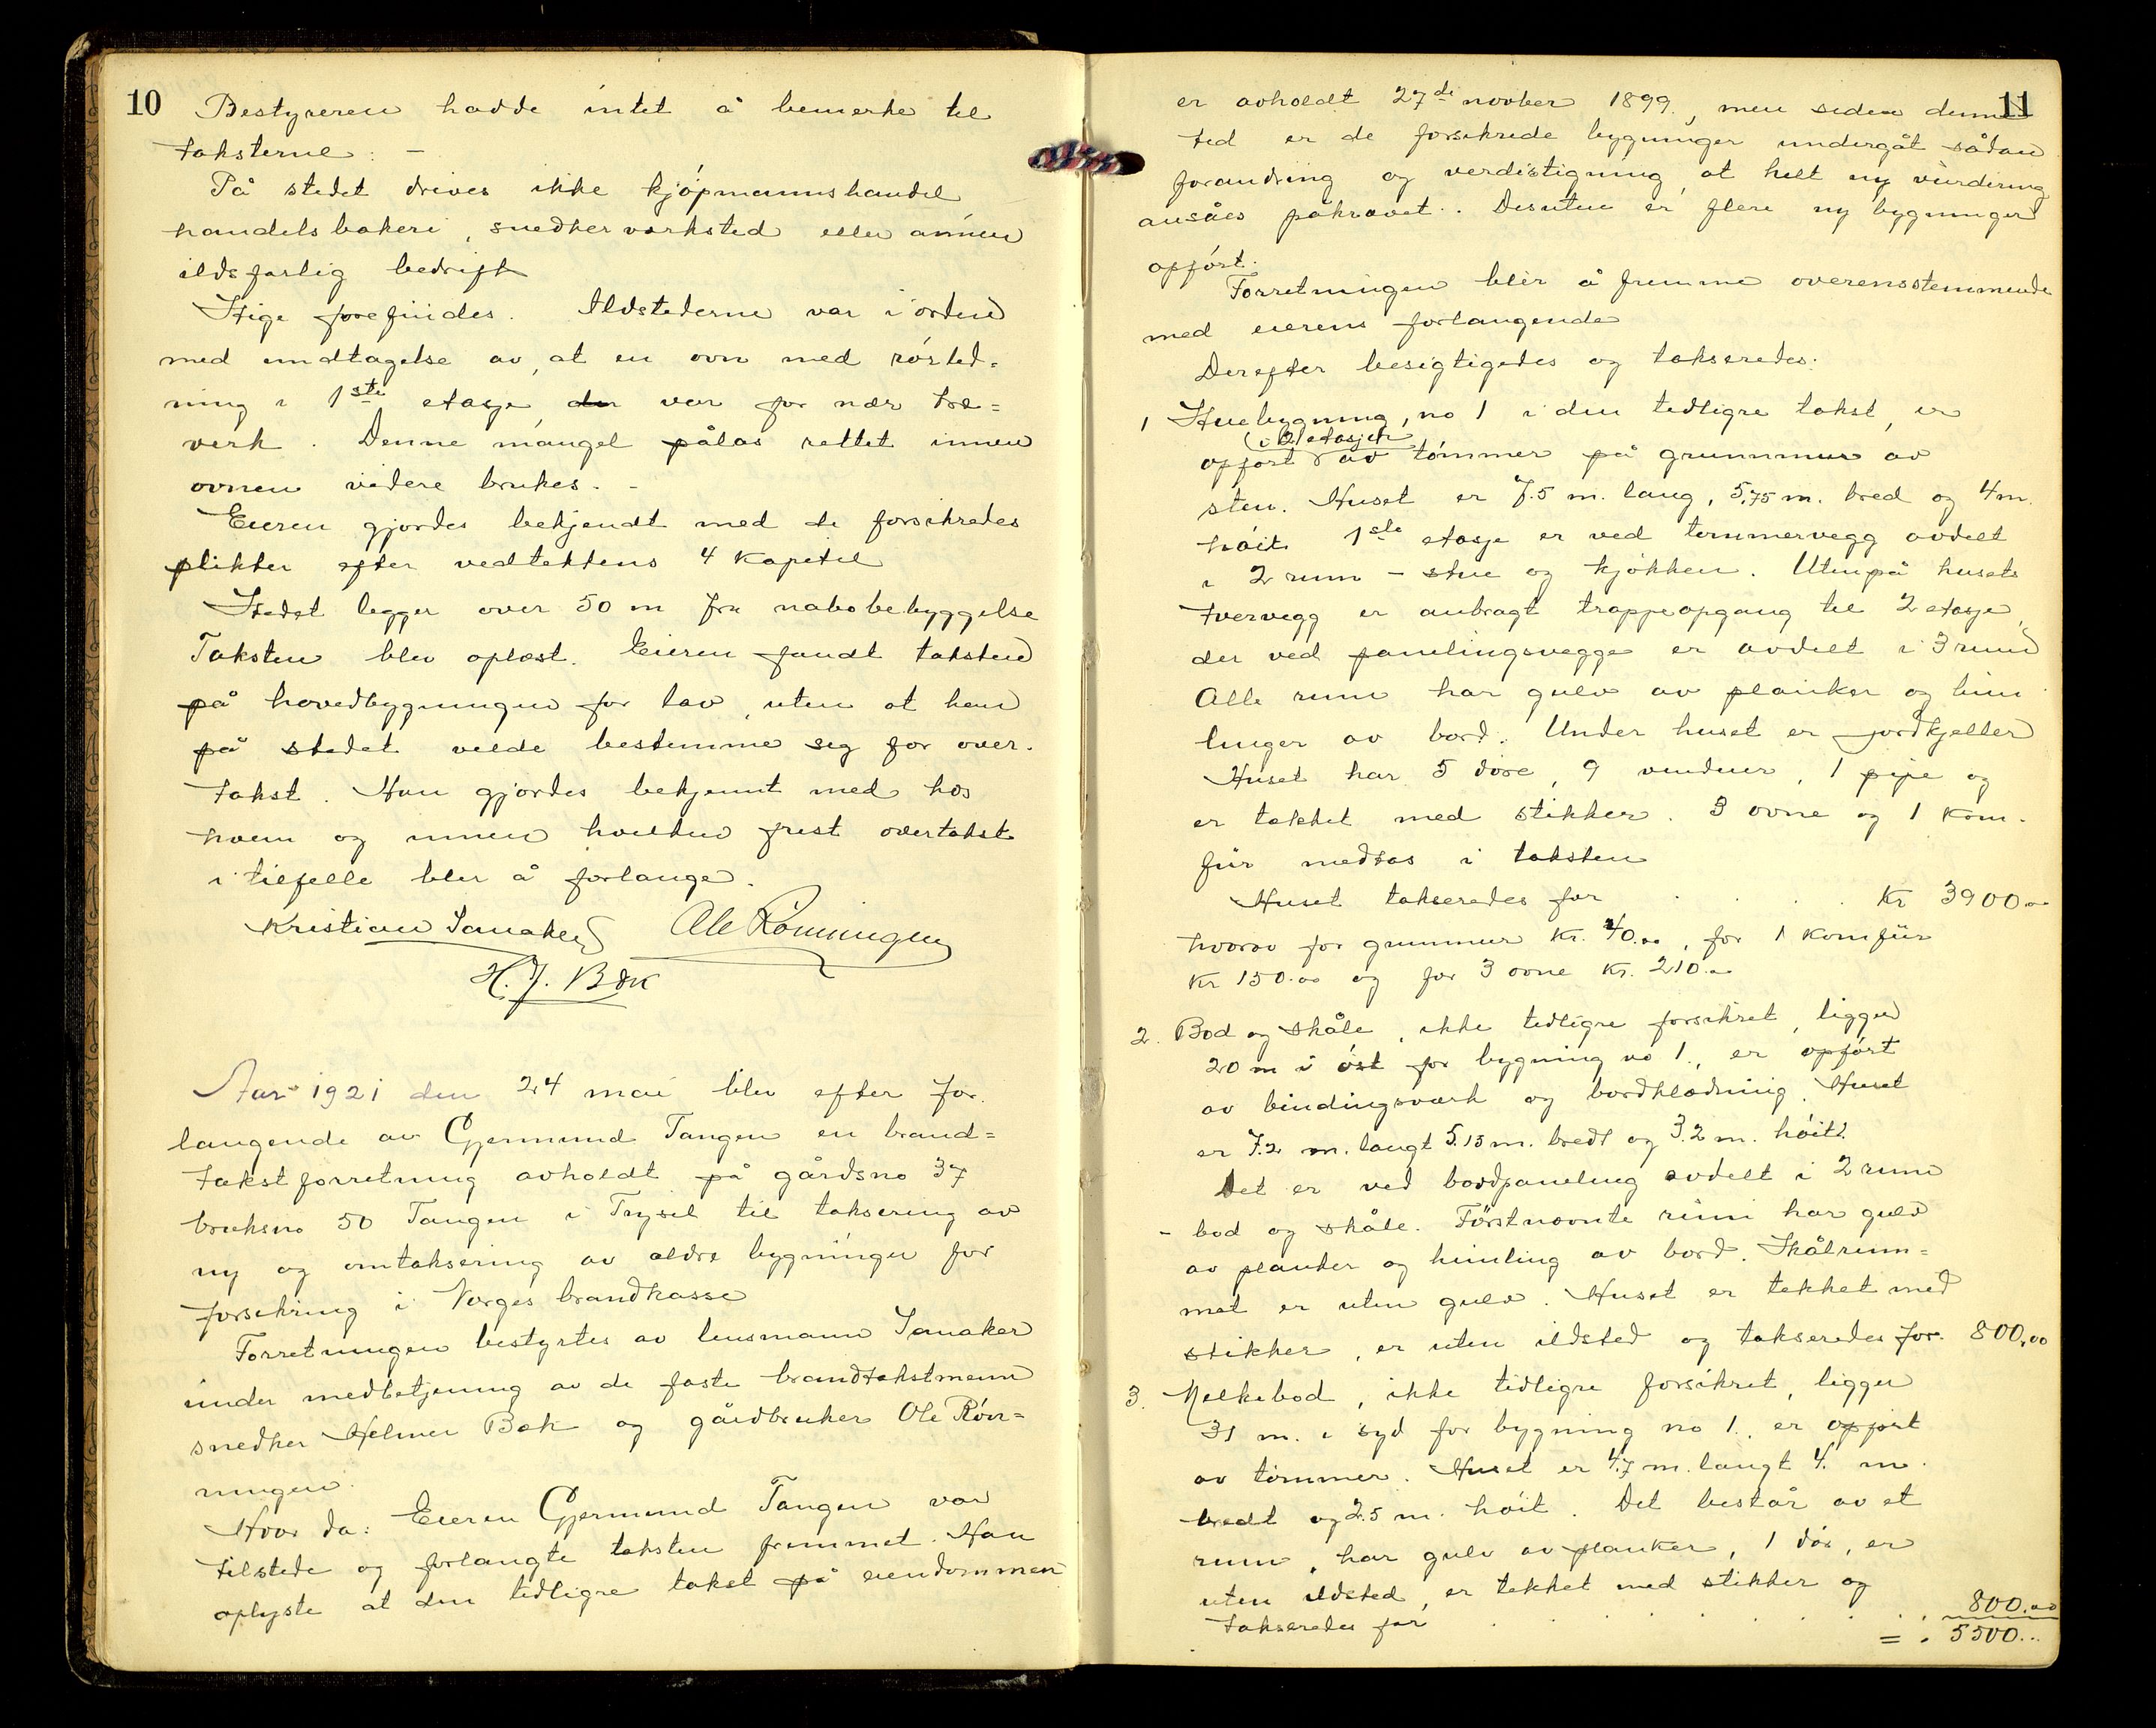 10
Bestyreren hadde intet å bemerke til
taksterne: -
På stedet drives ikke kjøpmannshandel
handelsbakeri, snedkerverksted eller annen
ildsfarlig bedrift
Stige forefindes. Ildstederne var i orden
med undtagelse av, at en ovn med rørled-
ning i 1ste etasje der var for nær træ-
verk. Denne mangel pålas rettet innen
ovnen videre brukes. -
Eieren gjordes bekjendt med de forsikredes
plikter efter vedtektens 4 kapitel
Stedet legger over 50 m fra nabobebyggelse
Taksten blev oplæst. Eieren fandt taksten
på hovedbygningen for lav, uten at han
på stedet vilde bestemme seg for over-
takst. Han gjordes bekjennt med hos
hvem og innen hvilken frist overtakst
i tilfelle blir å forlange.
Kristian Sanaker Ole Rönningen
H. J. Bæk
Aar 1921 den 24 mai blev efter for-
langende av Gjermund Tangen en brand=
takstforretning avholdt på gårdsno 37
bruksno 50 Tangen i Trysil til taksering av
ny og omtaksering av ældre bygninger for
forsikring i Norges brandkasse
Forretningen bestyrtes av lensmann Sanaker
under medbetjening av de faste brandtakstmenn
snedker Helmer Bæk og gårdbruker Ole Rønn=
ningen.
Hvor da: Eieren Gjermund Tangen var
tilstede og forlangte taksten fremmet. Han
oplyste at den tidligre takst på eiendommen
11
er avholdt 27de novber 1899, men siden denne
tid er de forsikrede bygninger undergåt sådan
forandring og verdistigning, at helt ny vurdering
ansåes påkrævet. Desuten er flere ny bygninger
opført.
Forretningen blir å fremme overensstemmende
med eierens forlangende
Derefter besigtigedes og takseredes:
1 Stuebygning, no 1 i den tidligre takst, er
(i 2 etasjer
opført av tømmer på grunnmur av
sten. Huset er 7.5 m. lang, 5,75 m. bred og 4 m.
høit. 1ste etasje er ved tømmervegg avdelt
i 2 rum - stue og kjøkken. Utenpå husets
tvervegg er anbragt trappeopgang til 2 etasje,
der ved panelingsvegge er avdelt i 3 rum
Alle rum har gulv av planker og him
linger av bord. Under huset er jordkjeller
Huset har 5 døre, 9 vinduer, 1 pipe og
er tekket med stikker. 3 ovne og 1 kom-
fur medtas i taksten
Huset takseredes for . . . . Kr 3900.00
hvorav for grunmur Kr. 40.00, for 1 komfür
Kr 150.00 og for 3 ovne Kr. 210.00
2. Bod og skåle, ikke tidligre forsikret, ligger
20 m i øst for bygning no 1., er opført
av bindingsværk og bordklædning. Huset
er 7.2 m. langt 5.15 m. bredt og 3.2 m. høit.
Det er ved bordpaneling avdelt i 2 rum
- bod og skåle. Förstnævnte rum har gulv
av planker og himling av bord. Skålrum=
met er uten gulv. Huset er tekket med
stikker, er uten ildsted og takseredes for. 800,00
3. Melkebod, ikke tidligre forsikret, ligger
31 m. i syd for bygning no 1., er opført
av tømmer. Huset er 4.7 m. langt 4. m.
bredt og 2.5 m. høit. Det består av et
rum, har gulv av planker, 1 dør, er
uten ildsted, er tekket med stikker og
takseredes for . . . . . . . 800.00
= . 5500..